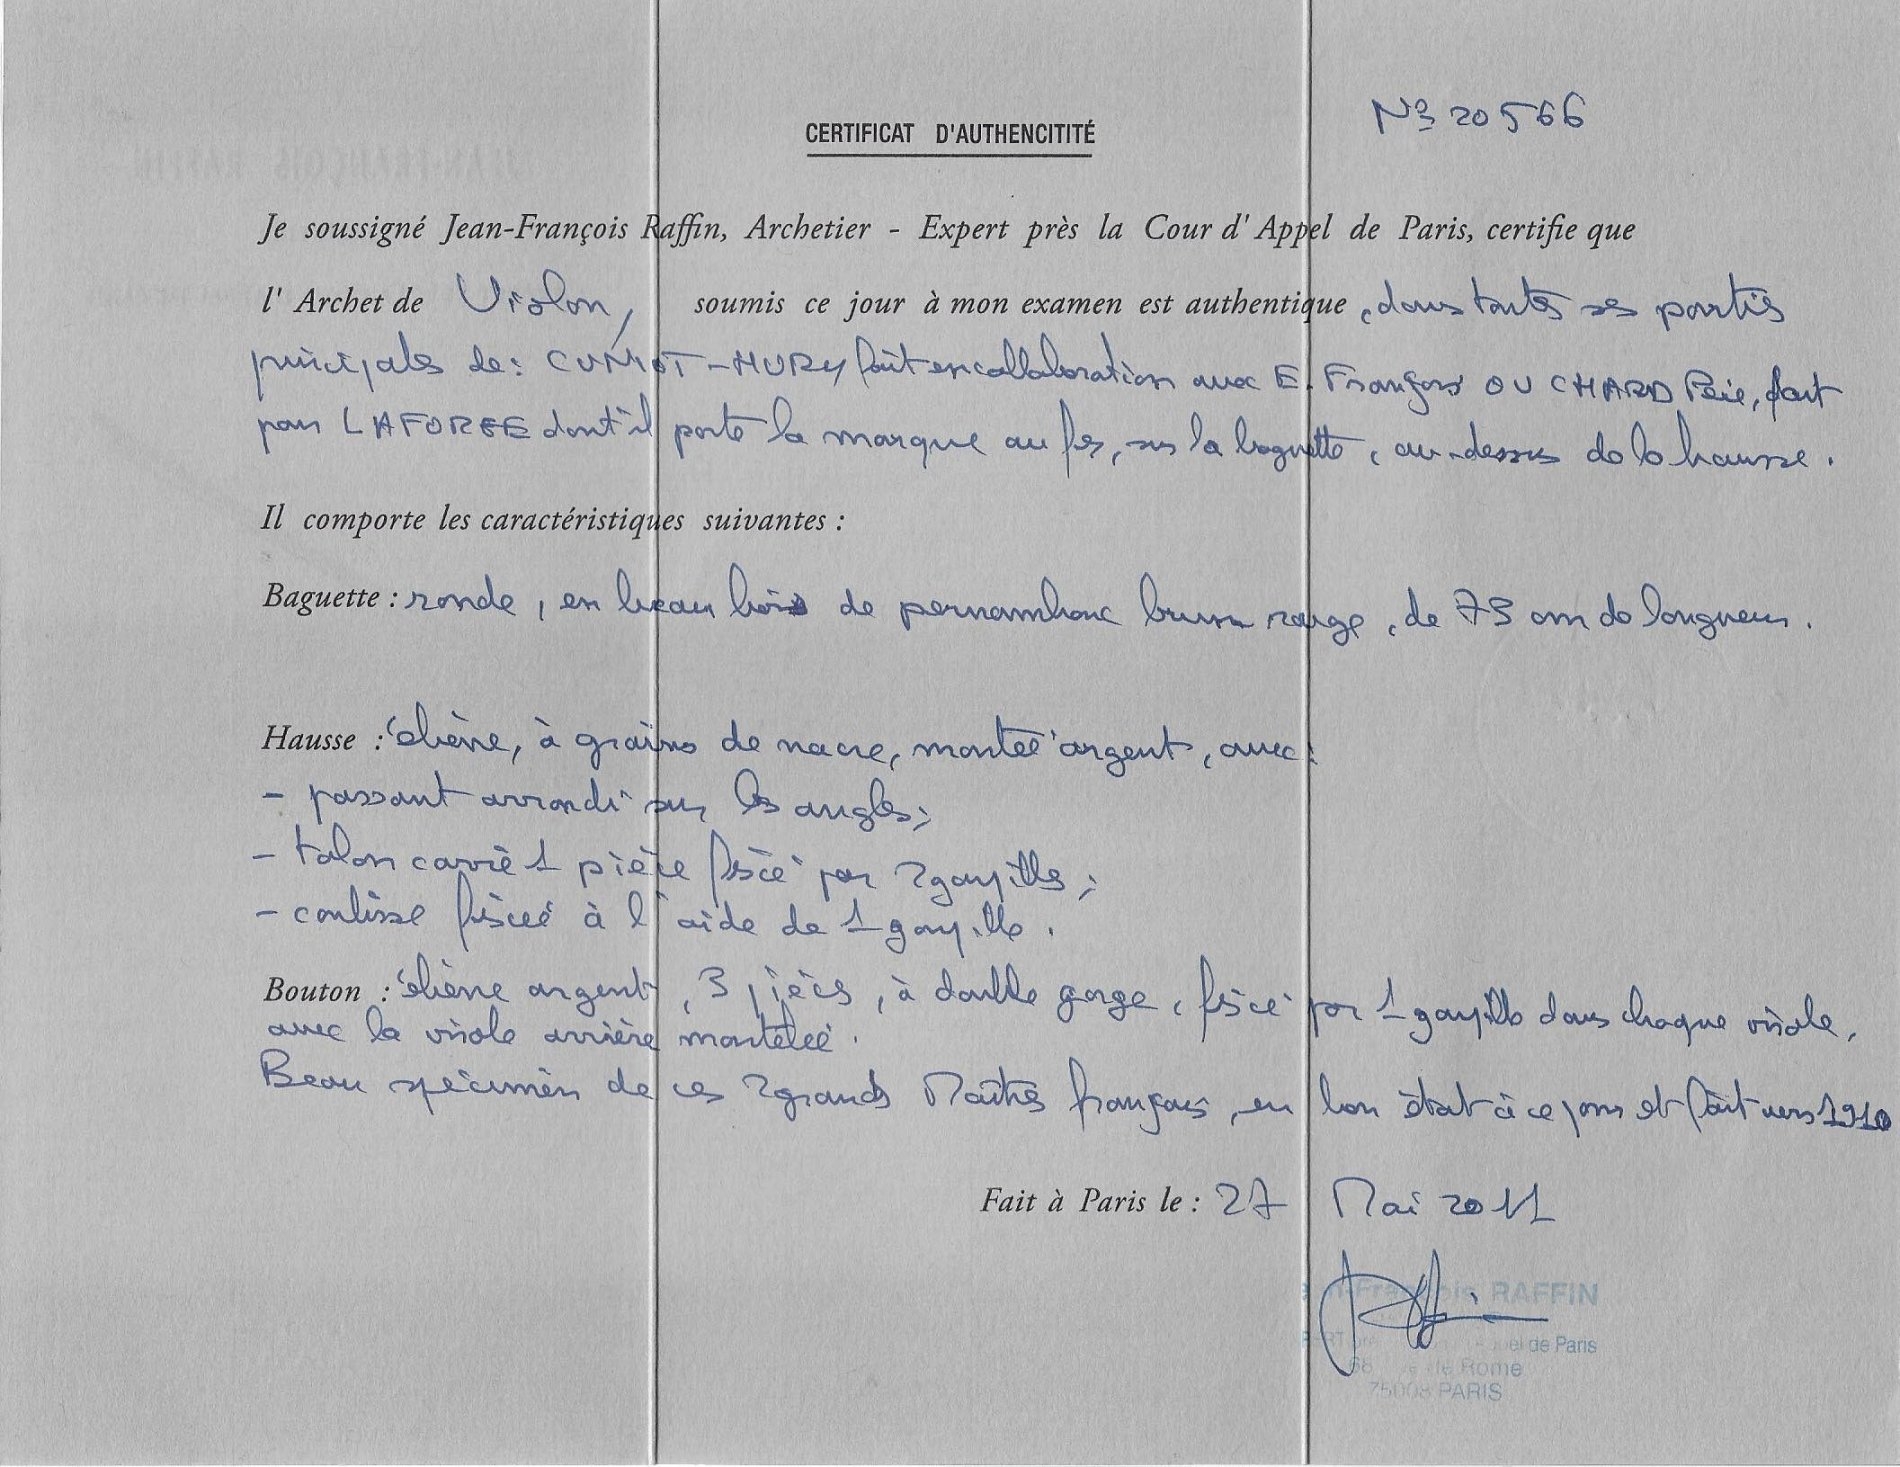 Nº 20566
CERTIFICAT D'AUTHENCITITÉ
Je soussigné Jean-François Raffin, Archetier - Expert près la Cour d'Appel de Paris, certifie que
l'Archet de Violon, soumis ce jour à mon examen est authentique, dans toutes ses parties
principales de: CUNIOT-HURY fait en collaboration avec E. François OUCHARD Père, fait
pour LAFOREE dont il porte la marque au fer, sur la baguette, au-dessus de la hausse.
Il comporte les caractéristiques suivantes :
Baguette : ronde, en beau bois de pernambouc brun rouge, de 73 cm de longueur.
Hausse : ébène, à grains de nacre, montée argent, avec:
- passant arrondi sur les angles;
- talon carré 1 pièce fixé par 2 goupilles;
- coulisse fixée à l'aide de 1 goupille.
Bouton : ébène argent, 3 pièces, à double gorge, fixé par 1 goupille dans chaque virole,
avec la virole arrière martelée.
Beau spécimen de ces 2 grands Maîtres français, en bon état à ce jour et fait vers 1910
Fait à Paris le : 27 Mai 2011
RAFFIN
de Paris
68 Rome
75008 PARIS